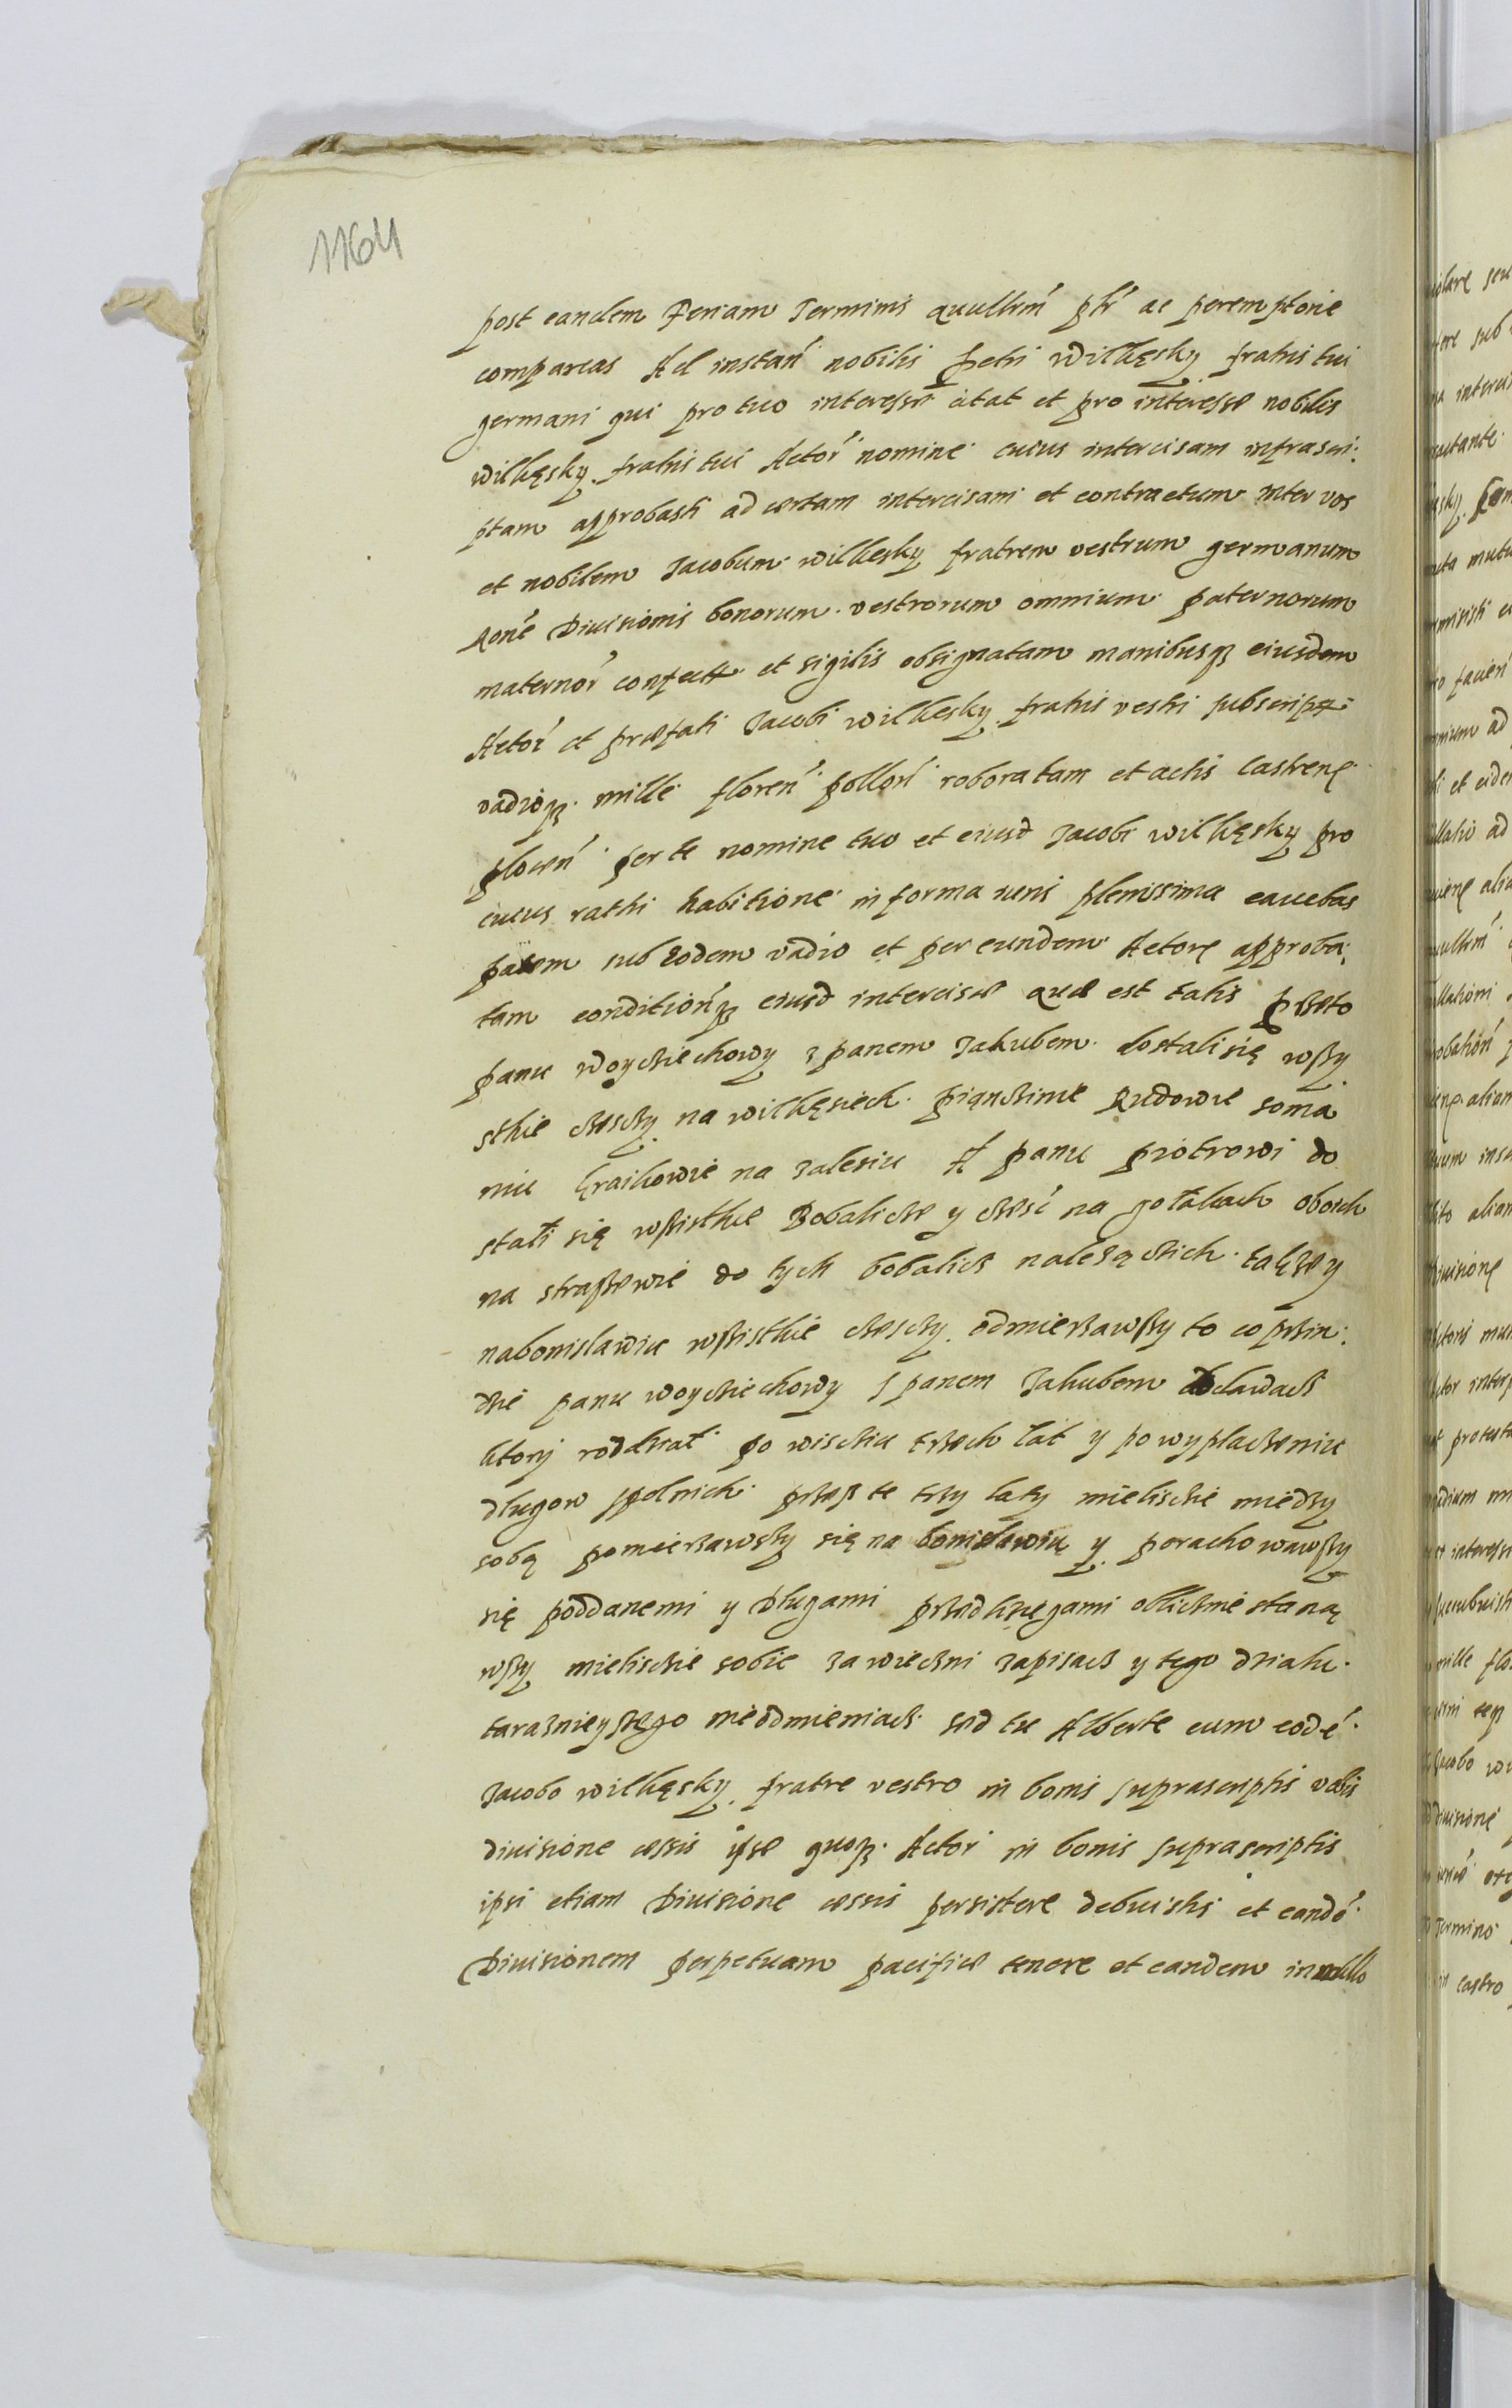 1164
post eandem Feriam Terminis quullrm̃ pltr̃ ac peremptorie
compareas Ad instań nobilis Petri Wilkęsky fratris tui
germani qui pro tuo interesse citat et pro interesse nobilis
wilkęsky fratris tui Actor̃ nomine cuius intercisam infrascri:
ptam approbasti ad certam intercisam et contractum inter vos
et nobilem Jacobum wilkesky fratrem vestrum germanum
Roñe Diuisionis bonorum vestrorum omnium paternorum
maternor̃ confect et sigilis obsignatam manibusqz eiusdem
Actor̃ et præfati Jacobi wilkesky fratris vestri subscript
vadioqz mille floreń polloń roboratam et actis Castrenę
ploceń per te nomine tuo et eiusd Jacobi wilkęsky pro
cuius rathi habitione in forma iuris plenissima cauebas
parem sub Eodem vadio et per eundem Actorę approba:
tam conditionqz eiusd intercisæ quæ est talis przeto
panu woyciechowy z panem Jakubem dostali się wszy
stkie czesczy na wilkęsiech piąnczinie Rudowie soma
niu kraikowie na zalesiu A panu piotrowi do
stałi się wszistkie Bobalicze y czesć na gołakach oboich
na straszewie do tych bobalicz należączich takze y
nabonislawiu wszistkie czesczy odmierzawszy to co przin:
dzie panu woyciechowy s panem Jakubem do dawacz
ktory rozdział po wisciu trzech lat y po wyplaczeniu
długow spolnich przesz te trzy laty mieliscie miedzy
sobą pomierzawszy się na bonislawiu y porachowawszy
się poddanemi y Długami przed xięgami obliczniestaną
wszy mieliscie sobie za wieczni zapisacz y tego dzialu
taraznieyszego nieodmieniacz sed tu Alberte cum eodē
Jacobo wilkęsky fratre vestro in bonis suprascriptis vobis
diuisione cessis ipse quoqz Actor in bonis suprascriptis
ipsi etiam Diuisione cessis persistere debuisti et eandē
Diuisionem perpetuam pacifice tenere et eandem innullo